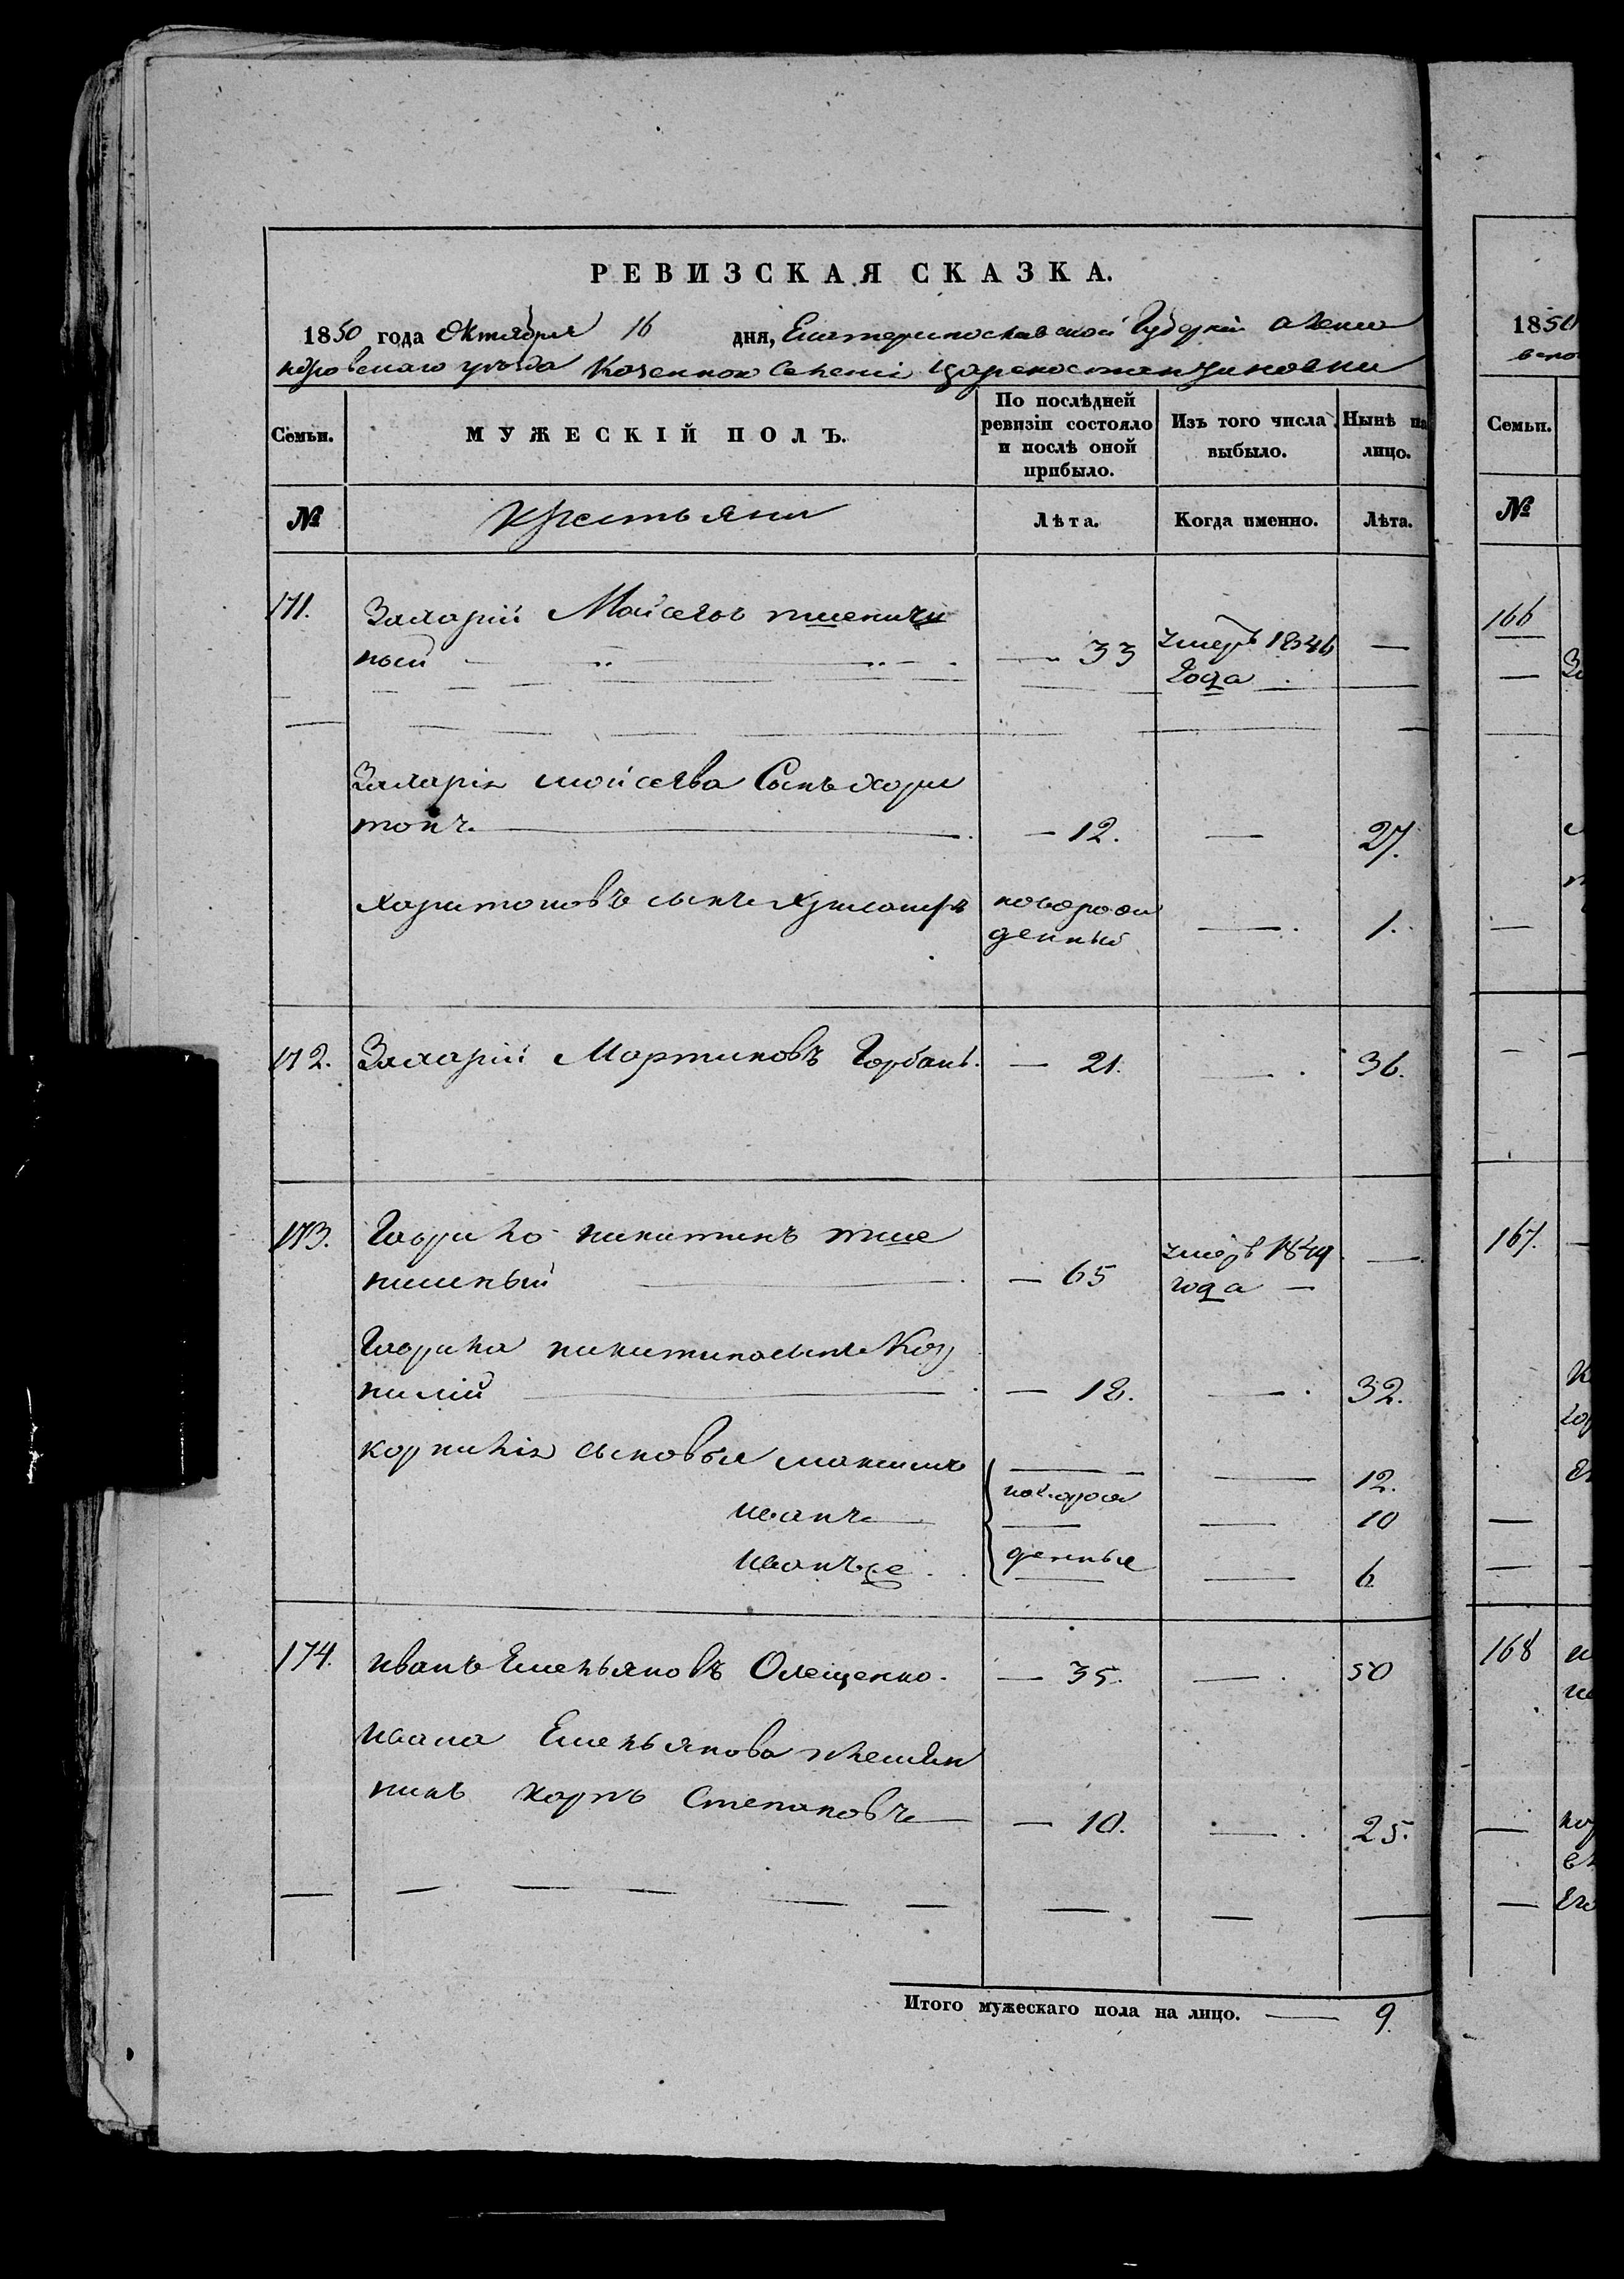 РЕВИЗСКАЯ СКАЗКА.
1850 года Октября 16 дня, Екатеринославской Губерніи Алекса
ндровскаго уѣзда Казенной Селеніи Цареконстантиновки
Семьи. МУЖЕСКІЙ ПОЛЪ. По послѣдней ревизіи состояло и послѣ оной прибыло. Изъ того числа выбыло. Нынѣ на лицо.
№ Крестьяни Лѣта. Когда именно. Лѣта.
171. Захарій Мойсеевъ пшенич
ный 33 умеръ 1846 года —
Захарія мойсеева Сынъ Хари
тонъ — 12. — 27.
Харитоновъ сынъ новорож
денный — 1.
172. Захарій Мартиновъ Горбань. — 21. — 36.
173. Гаврило никитинъ пше
нишный — 65 умеръ 1849 года —
Гаврила никитина сынъ Кор
нилій — 18. — 32.
корнилія сыновья максимъ — 12.
иванъ новорож — 10
иванъ же денные — 6
174. иванъ Емельяновъ Олещенко. — 35. — 50
ивана Емельянова племян
никъ карпъ Степановъ — 10. — 25.
Итого мужескаго пола на лицо. — 9.
1850
Семьи.
№
166
167.
168